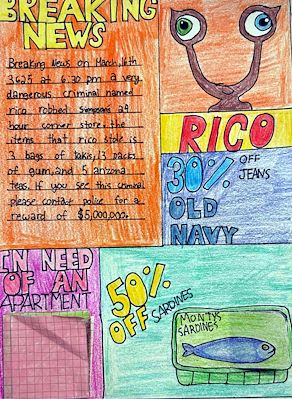 BREAKING
NEWS
Breaking News on March, 16th
3625 at 6:30 pm a very
dangerous criminal named
rico robbed Simpsons 24
hour corner store, the
items that rico stole is
3 bags of takis, 13 packs
of gum, and 5 arizona
teas. If you see this criminal
please contact police for a
reward of $5,000,000.
RICO
30% OFF
JEANS
OLD
NAVY
IN NEED
OF AN
APARTMENT
50%
OFF SARDINES
MONTYS
SARDINES